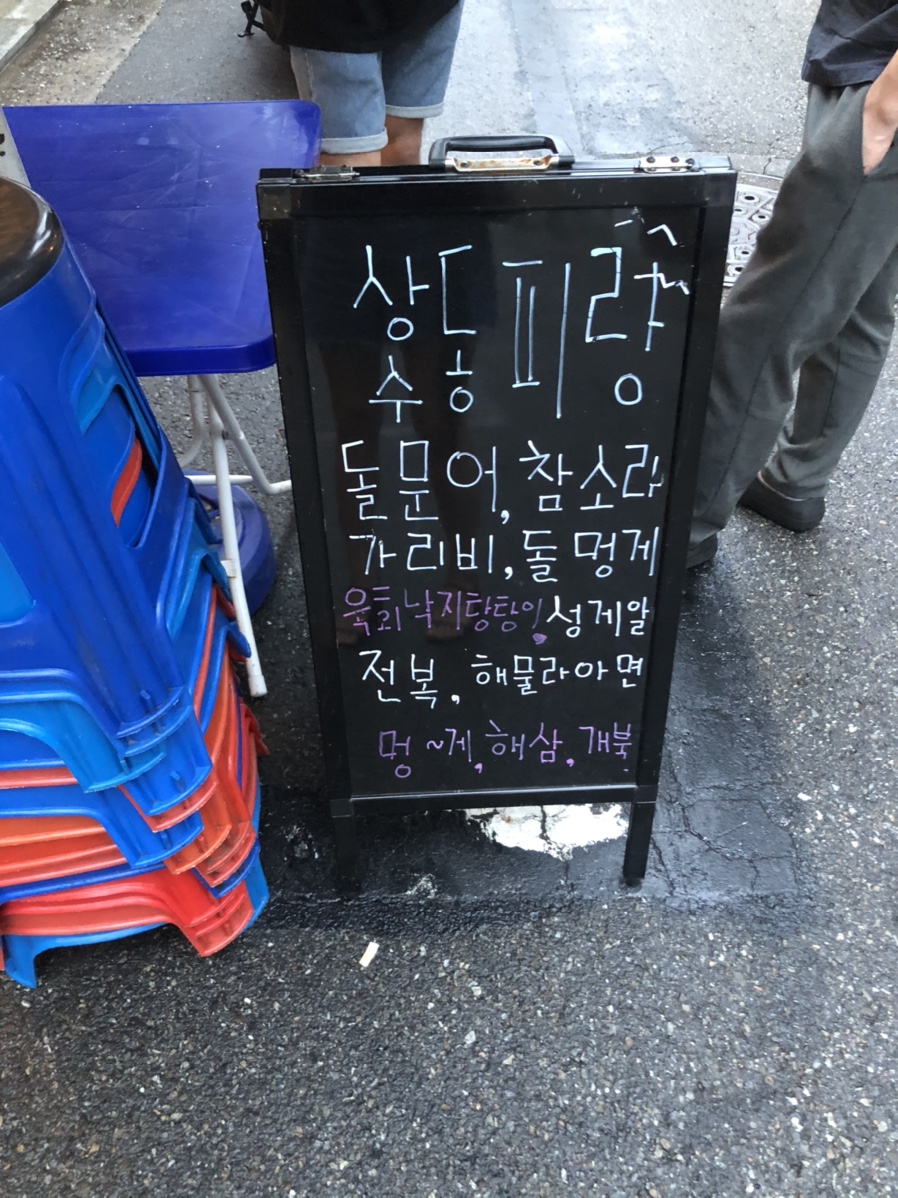 상수동피랑
돌문어, 참소라
가리비, 돌멍게
육회낙지탕탕이, 성게알
전복, 해물라아면
멍~게, 해삼, 개불